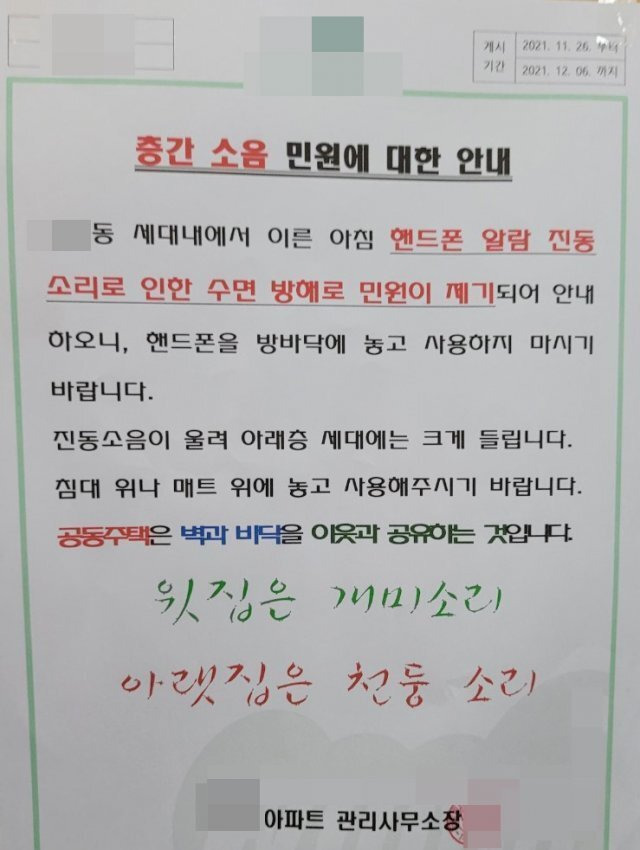 게시
기간
2021. 11. 26. 부터
2021. 12. 06. 까지
층간 소음 민원에 대한 안내
동 세대내에서 이른 아침 핸드폰 알람 진동
소리로 인한 수면 방해로 민원이 제기되어 안내
하오니, 핸드폰을 방바닥에 놓고 사용하지 마시기
바랍니다.
진동소음이 울려 아래층 세대에는 크게 들립니다.
침대 위나 매트 위에 놓고 사용해주시기 바랍니다.
공동주택은 벽과 바닥을 이웃과 공유하는 것입니다.
윗집은 개미소리
아랫집은 천둥 소리
아파트 관리사무소장